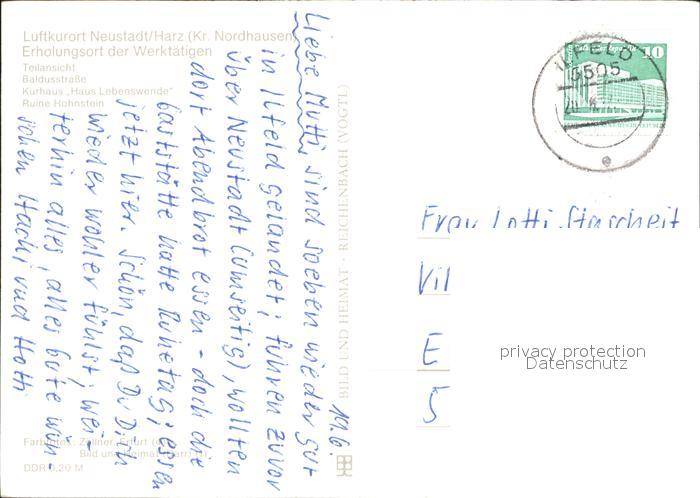 Luftkurort Neustadt/Harz (Kr. Nordhausen)
Erholungsort der Werktätigen
Teilansicht
Baldusstraße
Kurhaus „Haus Lebenswende"
Ruine Hohnstein
19.6.
Liebe Mutti, sind soeben wieder gut
in Ilfeld gelandet; fuhren zuvor
über Neustadt (umseitig), wollten
dort Abendbrot essen - doch die
Gaststätte hatte Ruhetag; essen
jetzt hier. Schön, daß Du Dich
wieder wohler fühlst; wei-
terhin alles, alles Gute wün-
schen Hach, und Hotti
Farbfotos: Zöllner, Erfurt
Bild und Heimat
DDR 0,20 M
BILD UND HEIMAT · REICHENBACH (VOGTL)
ILFELD
5505
20
10
Frau Lotti Starcheit
Vil
E
S
privacy protection
Datenschutz